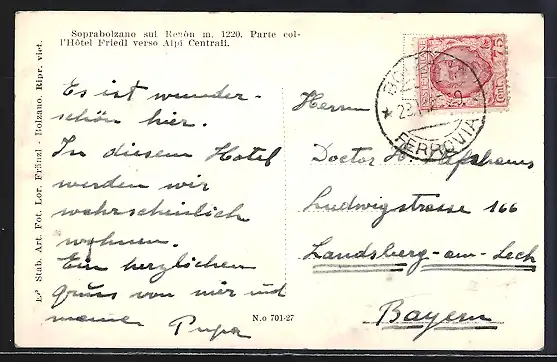 Soprabolzano sul Renòn m. 1220. Parte col-
l'Hôtel Friedl verso Alpi Centrali.
Es ist wunder-
schön hier.
In diesem Hotel
werden wir
wahrscheinlich
wohnen.
Ein herzlichen
Gruss von mir und
meiner Pupa
Herrn
Doctor H.
Ludwigstrasse 166
Landsberg-am-Lech
Bayern
FERROVIA
Cent. 75
N.o 701-27
Ed. Stab. Art. Fot. Lor. Fränzl - Bolzano. Ripr. viet.